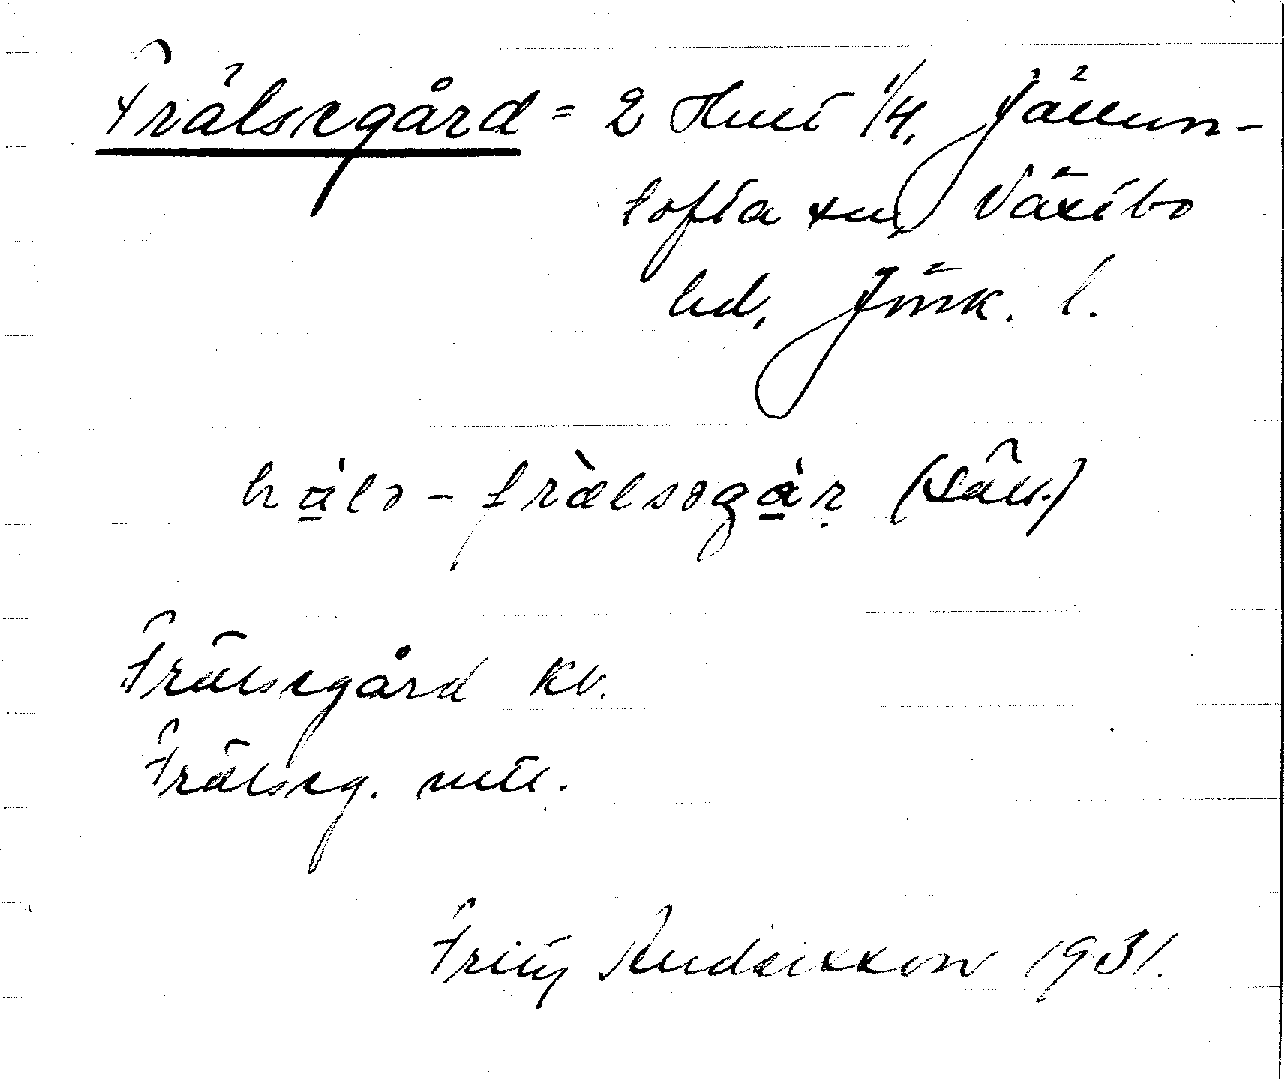 Frälsegård = 2 Hult 1/4, Jällun-
tofta sn, Västbo
hd, Jönk. l.
hàlə-frælsəgàr (säll.)
Frälsegård kv.
Frälseg. mtl.
Fritz Andersson 1931.